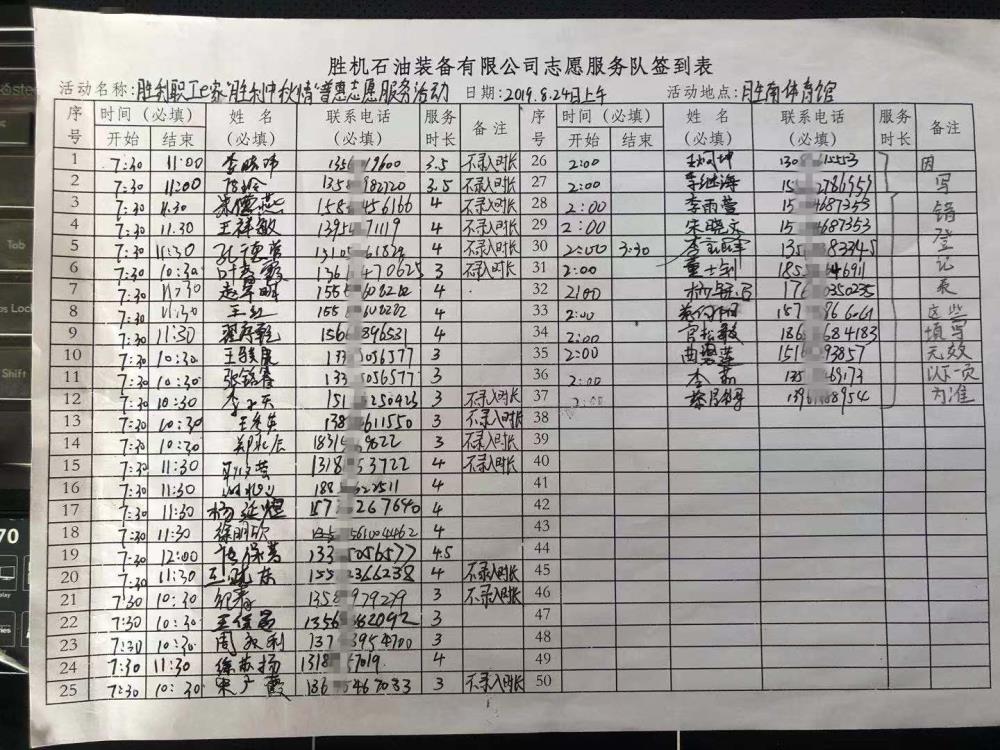 胜机石油装备有限公司志愿服务队签到表
活动名称:胜利职工e家"胜利中秋情"普惠志愿服务活动 日期:2019.8.24日上午 活动地点:胜南体育馆
序号 时间（必填） 姓 名 联系电话 服务时长 备注 序号 时间（必填） 姓 名 联系电话 服务时长 备注
开始 结束 (必填) (必填) 开始 结束 (必填) (必填)
1 7:30 11:00 135 19600 3.5 不录入时长 26 2:00 130 61553 因
2 7:30 11:00 1358 982720 3.5 不录入时长 27 2:00 李继海 15 2786959 写
3 7:30 11:30 158 456166 4 不录入时长 28 2:00 李雨萱 15 4687353 错
4 7:30 11:30 王祥敏 1395 71119 4 不录入时长 29 2:00 宋晓文 15 4687353 登
5 7:30 11:30 孔德华 13105 61829 4 不录入时长 30 2:00 3:30 135 83345 记
6 7:30 10:30 叶 霞 136 470625 3 不录入时长 31 2:00 董士钊 185 46911 表
7 7:30 11:30 赵军明 155 608282 4 32 2:00 176 0350235
8 7:30 11:30 王红 155 608282 4 33 2:00 157 86 6061 这些
9 7:30 11:30 156 896531 4 34 2:00 官 敏 186 684183 填写
10 7:30 10:30 王 133 056577 3 35 2:00 曲 莲 1516 93857 无效
11 7:30 10:30 张铭春 133 056577 3 36 2:00 李 135 69173 以下一页
12 7:30 10:30 李 151 250423 3 不录入时长 37 2:00 1396 88954 为准
13 7:30 10:30 王 138 611550 3 不录入时长 38
14 7:30 10:30 郑永辰 1831 9622 3 不录入时长 39
15 7:30 11:30 1318 53722 4 不录入时长 40
16 7:30 11:30 188 622511 4 41
17 7:30 11:30 杨延煜 157 267640 4 42
18 7:30 11:30 徐明欣 561004462 4 43
19 7:30 12:00 张保营 133 056577 4.5 44
20 7:30 11:30 王晓东 155 2366238 4 不录入时长 45
21 7:30 10:30 纪春 1358 979279 3 不录入时长 46
22 7:30 10:30 王俊昌 1356 382092 3 47
23 7:30 10:30 周永利 137 3954700 3 48
24 7:30 11:30 徐苏扬 1318 57019 4 49
25 7:30 10:30 宋广霞 136 5467033 3 不录入时长 50
Tab
Shift